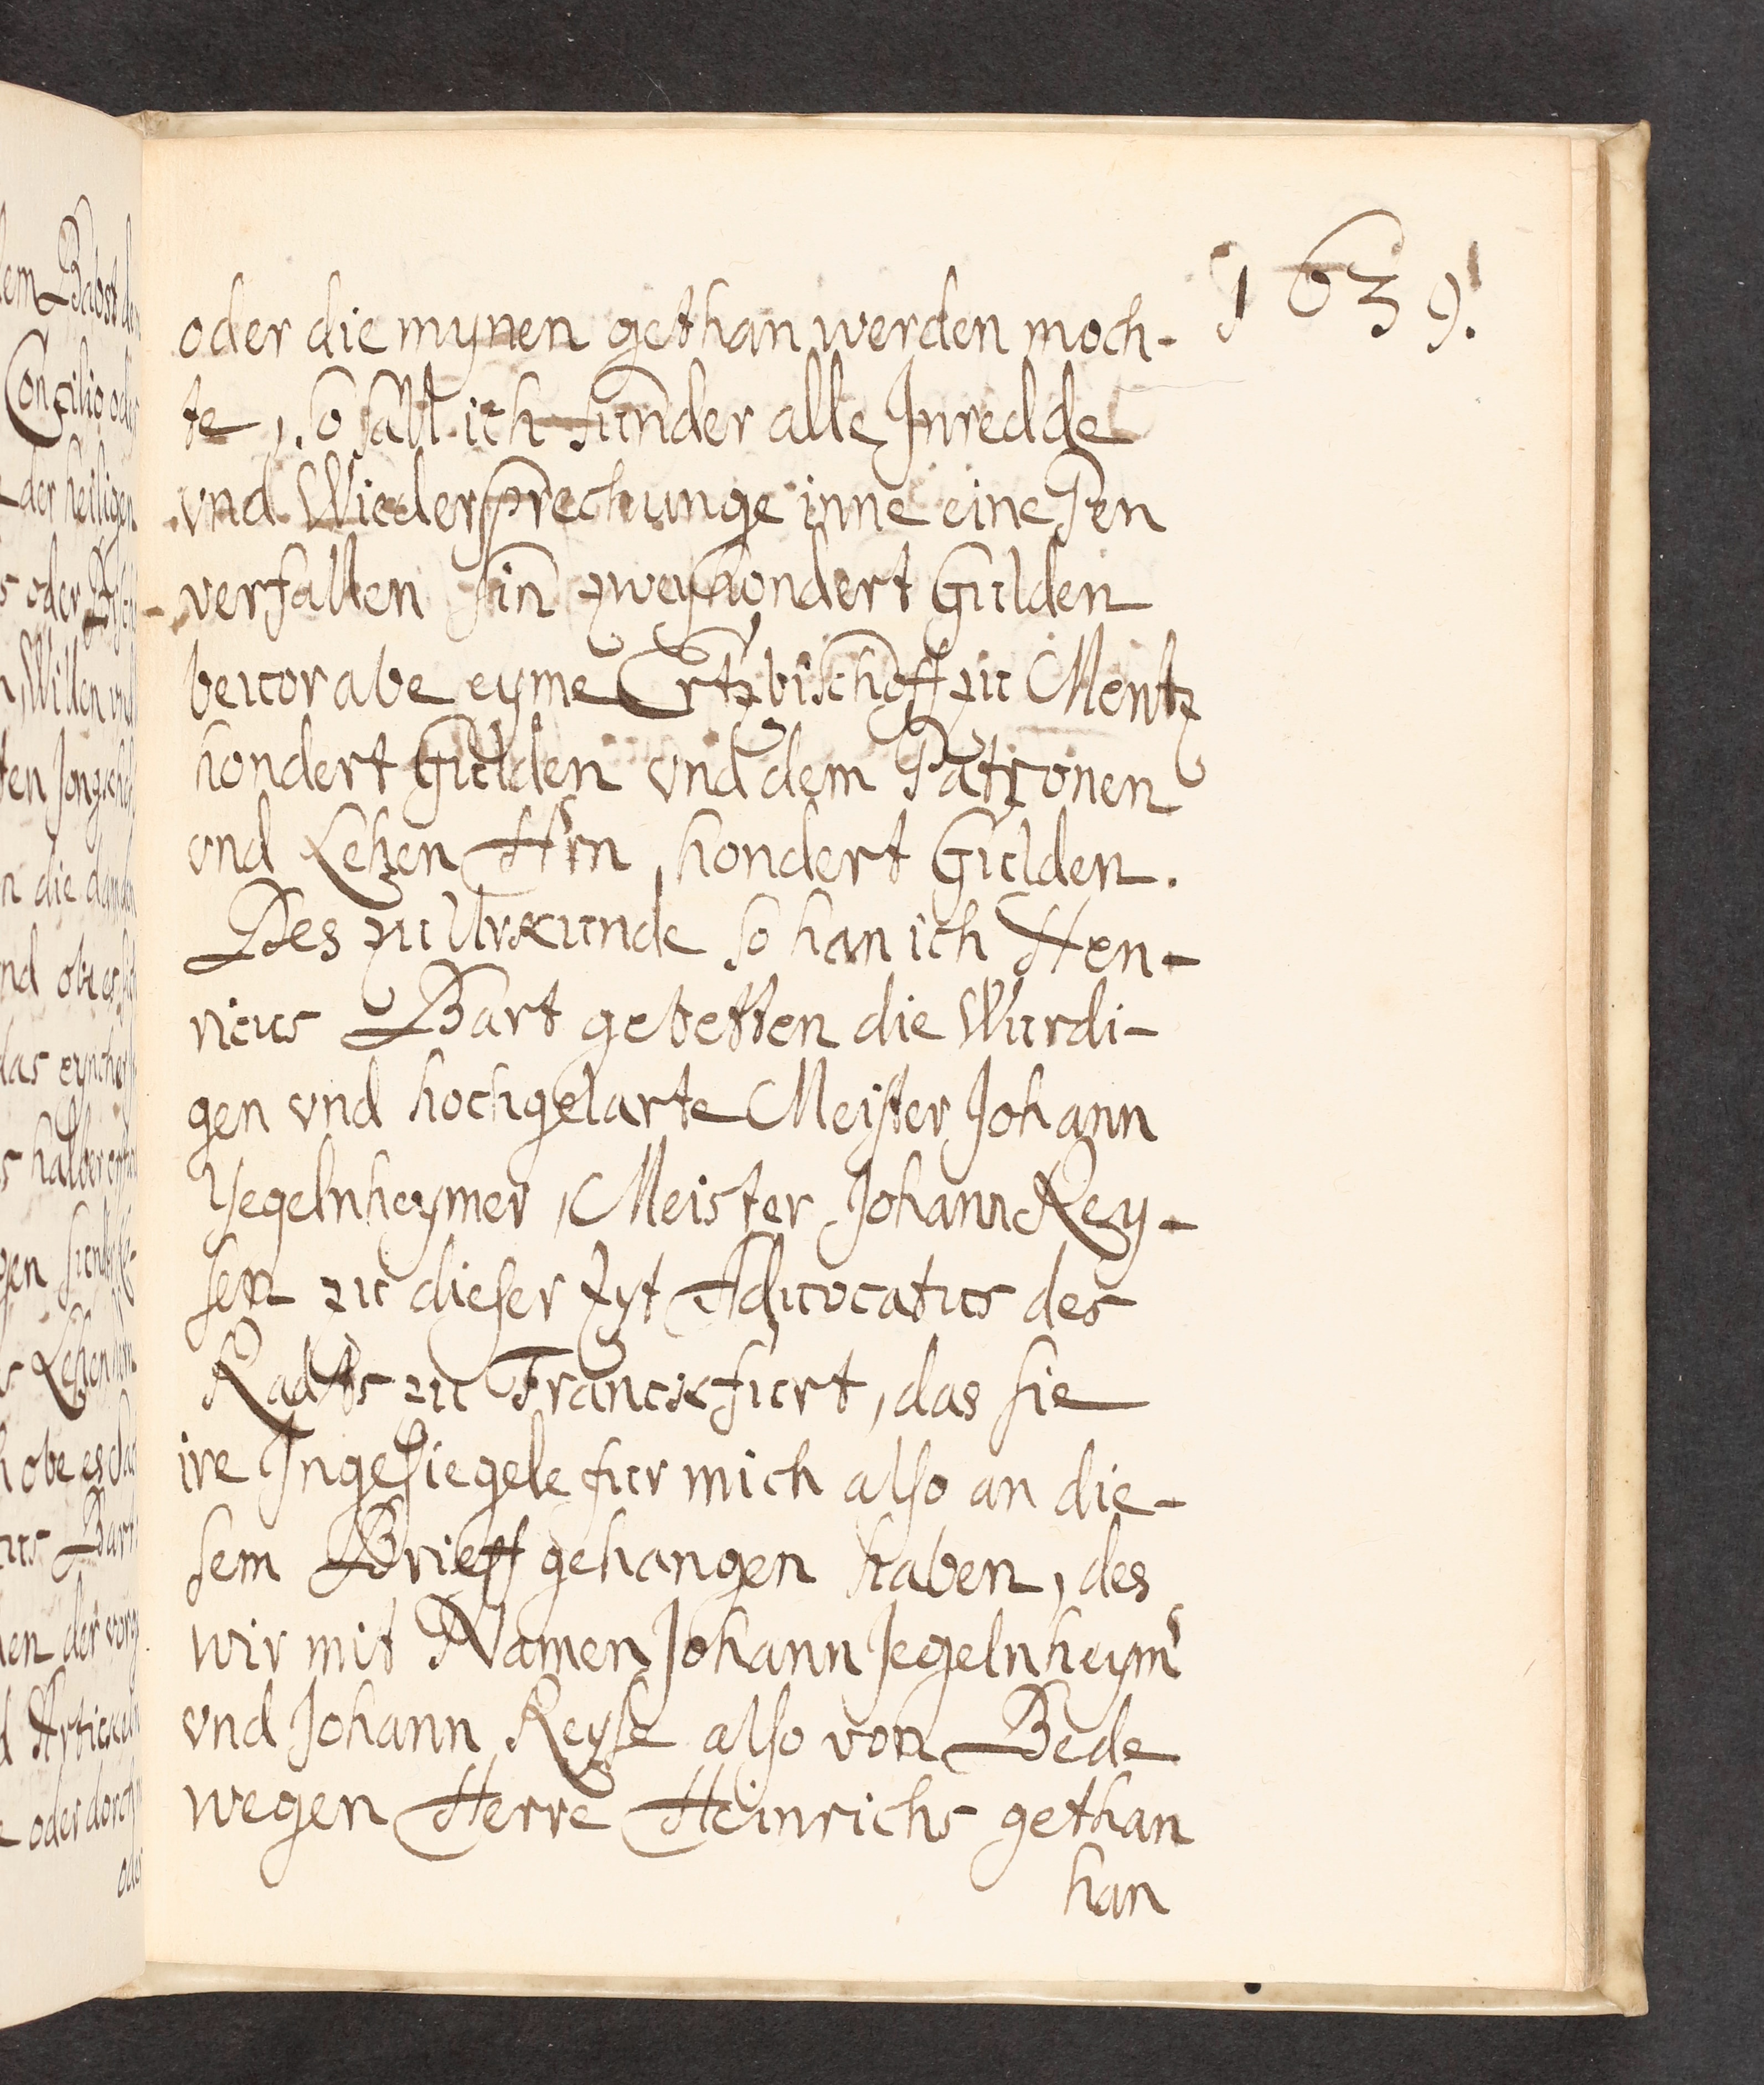 1639.
oder die mynen gethan werden moch-
te, so sall ich sunder alle Inredde
vnd Wiedersprechunge inne eine Pen
verfallen sin zweyhondert Gulden
beuorabe eyme Ertzbischoff zu Mentz
hondert Gulden vnd dem Patronen
vnd Lehen Hrn, hondert Gulden.
Des zu Urkunde so han ich Hen-
ricus Bart gebetten die Wurdi-
gen vnd hochgelarte Meister Johann
Yegelnheymer, Meister Johann Rey-
sen zu dieser zyt Aduocatus des
Radts zu Franckfurt, das sie
ire Ingesiegele fur mich also an die-
sem Brieff gehangen haben, des
wir mit Namen Johann Jegelnheym'
vnd Johann Reyse also von Bede
wegen Herre Heinrichs gethan
han